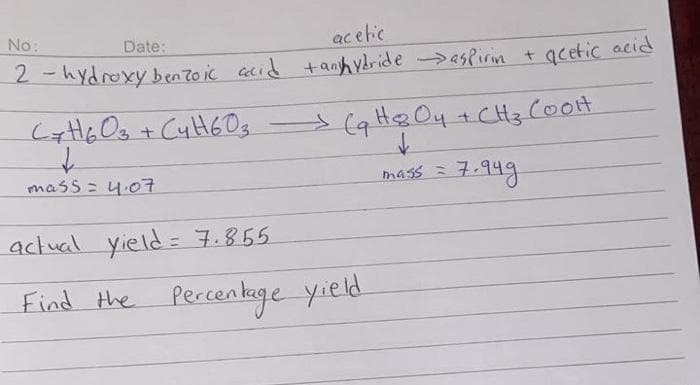 No: Date: acetic
2 - hydroxy benzoic acid + anhydride → aspirin + acetic acid
C7H6O3 + C4H6O3 → C9H8O4 + CH3COOH
↓ ↓
mass = 4.07 mass = 7.94g
actual yield = 7.855
Find the Percentage yield